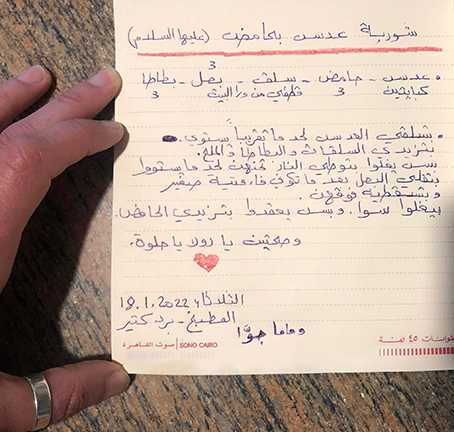 شوربة عدس بحامض (عليها السلام)
3
• عدس - حامض - سلق - بصل - بطاطا
كبايتين 3 قطفي من ورا البيت 3
• تسلقي العدس لحد ما تقريباً يستوي.
بتزيدي السلقات والبطاطا والملح.
بس يغلوا بتوطي النار تحتهن لحد ما يستووا
بتقلي البصل بعد ما تكوني صغير
وبتسقطيه فوقهن.
بيغلوا سوا. وبس يعقدوا بتزيدي الحامض.
وصحتين يا رولا يا حلوة.
الثلاثاء 18.1.2022
المطبخ - برد كتير
وماما جوّا
صوت القاهرة | SONO CAIRO
طوانات ٤٥ لفة